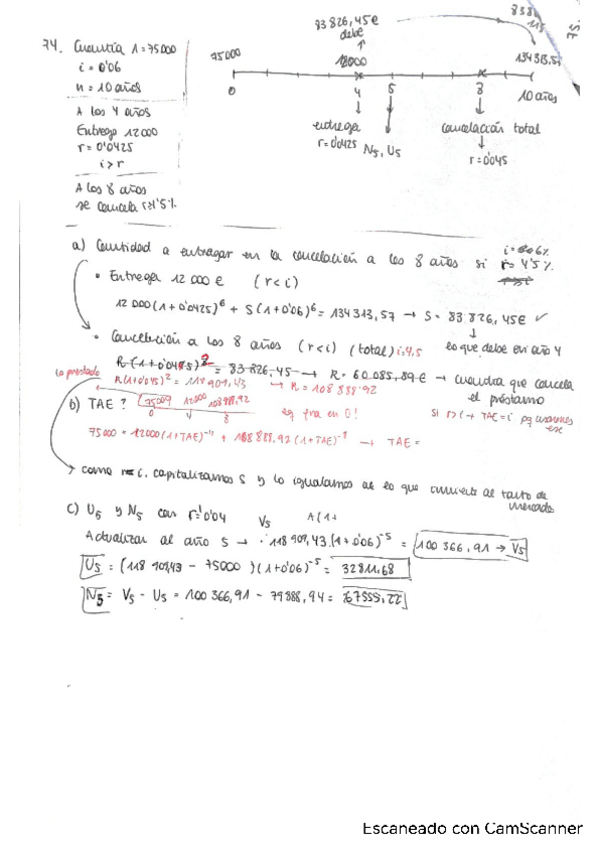 83 826,45€
debe
74. Cuantía 1 = 75000
i = 0'06
n = 10 años
75000
12000
134 313,57
0
4
5
8
10 años
A los 4 años
Entrega 12000
r = 0'0425
i > r
entrega
r = 0'0425
N5, U5
cancelación total
r = 0'045
A los 8 años
se cancela r = 4'5%
a) Cantidad a entregar en la cancelación a los 8 años si r = 4'5%
• Entrega 12 000 € (r < i)
12 000 (1 + 0'0425)^6 + S (1 + 0'06)^6 = 134 313,57 → S = 83 826,45€ ✓
• Cancelación a los 8 años (r < i) (total) i = 4,5
lo que debe en año 4
R (1 + 0'045)^2 = 83 826,45 → R = 60.085,89€ → cuantía que cancela
el préstamo
lo prestado
R (1 + 0'045)^2 = 118 909,43 → R = 108 888.92
b) TAE ?
75000 12000 108 888,92
0 4 8
eq fra en 0!
si r > i → TAE = i pq
75000 = 12000 (1 + TAE)^-4 + 108 888.92 (1 + TAE)^-8 → TAE =
como r < i. capitalizamos S y lo igualamos a lo que al tanto de
mercado
c) U5 y N5 con r = 0'04
V5
A (1 +
Actualizar al año 5 → · 118 909,43 (1 + 0'06)^-5 = 100 366,91 → V5
U5 = (118 909,43 - 75000) (1 + 0'06)^-5 = 32811,68
N5 = V5 - U5 = 100 366,91 - 79888,94 = 67555,22
Escaneado con CamScanner